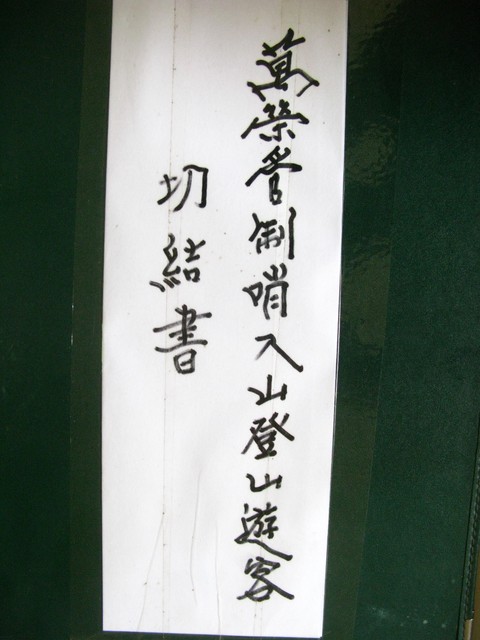 萬榮管制哨入山登山遊客
切結書